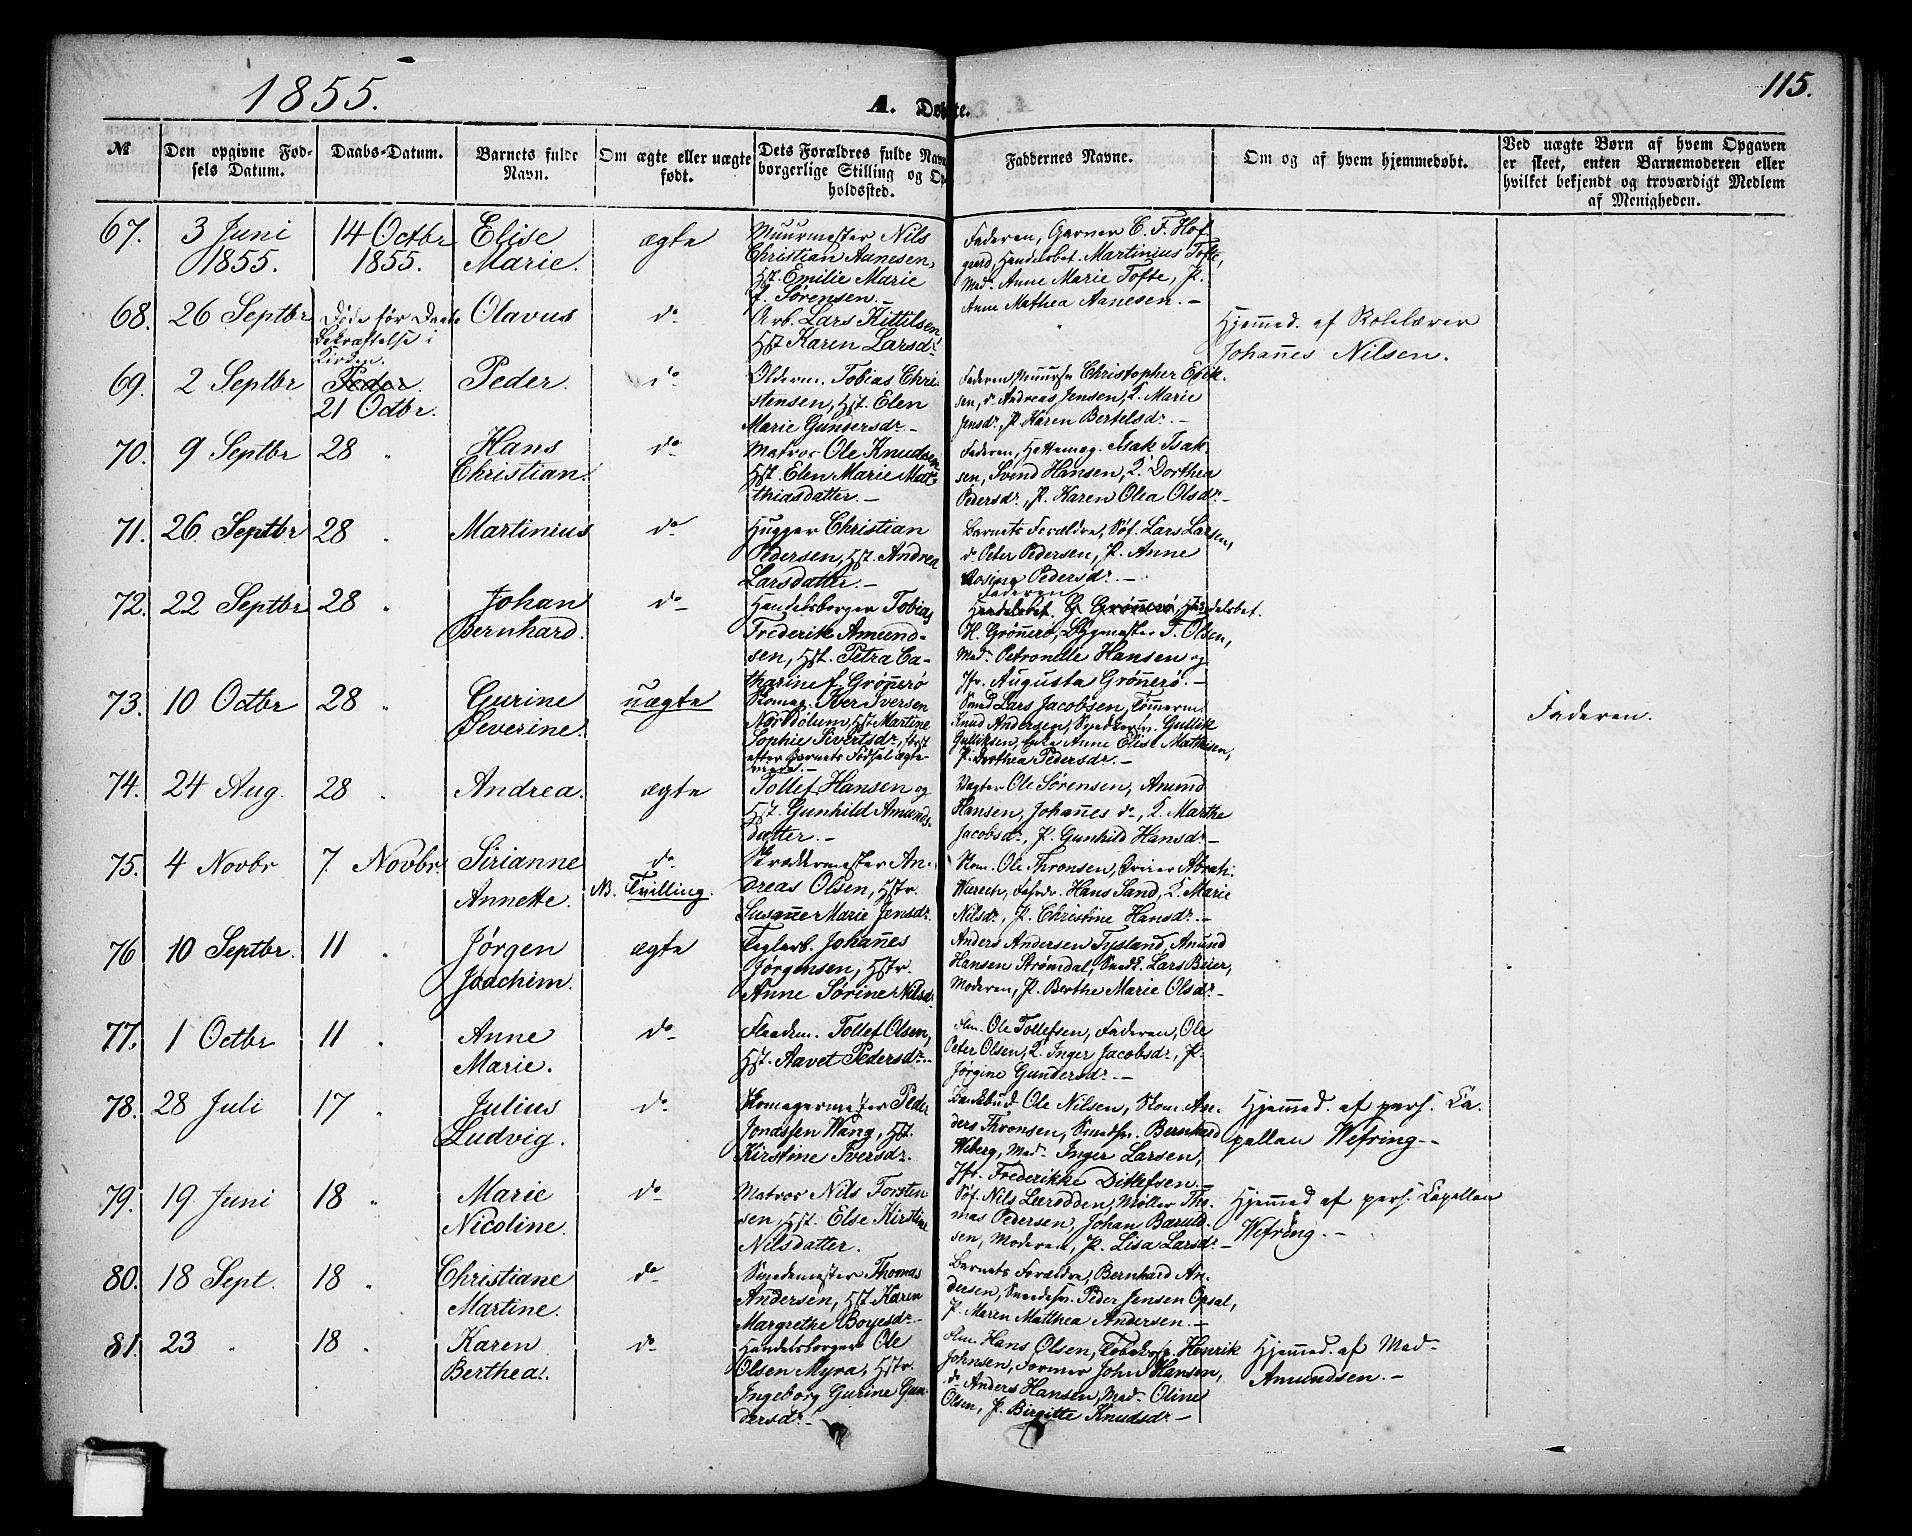 1855.
A. Døbte.
115.
№
Den opgivne Fød-
sels Datum.
Daabs-Datum.
Barnets fulde
Navn.
Om ægte eller uægte
født.
Dets Forældres fulde Navn
borgerlige Stilling og Op
holdssted.
Faddernes Navne.
Om og af hvem hjemmedøbt.
Ved uægte Børn af hvem Opgaven
er skeet, enten Barnemoderen eller
hvilket bekjendt og troværdigt Medlem
af Menigheden.
67.
3 Juni
1855.
14 Octbr
1855.
Elise
Marie.
ægte
Muurmester Nils
Christian Aanesen,
Hst. Emilie Marie
f. Sørensen.–
Faderen, Garver C. F. Hof
gaard, Handelsbet. Martinius Tofte,
Mad. Anne Marie Tofte, P.
Anne Mathea Aanesen.–
68.
26 Septbr
Døde før Daabs
Bekræftelse i
Kirken.
Olavus
do
Arb. Lars Kittilsen
Hst Karen Larsdr
Hjemmed. af Skolelærer
Johannes Nilsen.
69.
2 Septbr
Peder.
21 Octbr.
Peder.
do
Olderm. Tobias Chri-
stensen, Hst. Elen
Marie Gundersdr–
Faderen, Muursv. Christopher Erik-
sen, do Andreas Jensen, K. Marie
Jensdr, P. Karen Bertelsdr.–
70.
9 Septbr
28 "
Hans
Christian.
do
Matros Ole Knudsen
Hst. Elen Marie Mat
thiasdatter.–
Faderen, Hattemag. Isak Isak-
sen, Svend Hansen, K. Dorthea
Pedersdr, P. Karen Olea Olsdr.–
71.
26 Septbr
28 "
Martinius
do
Hugger Christian
Pedersen, Hst. Andrea
Larsdatter.–
Barnets Forældre, Søf. Lars Larsen,
do Peter Pedersen, P. Anne
Rosine Pedersdr.–
72.
22 Septbr
28 "
Johan
Bernhard.
do
Handelsborger Tobias
Frederik Amund-
sen, Hst. Petra Ca-
tharine f. Grønnerø
Faderen
Handelsbet. G Grønnerø, Handelsbet.
H. Grønnerø, Bygmester T. Olsen,
Mad. Petronelle Hansen og
Jfr. Augusta Grønnerø.–
73.
10 Octbr
28 "
Gurine
Severine.
uægte
Skomag. Iver Iversen
Norddølum, Hst Martine
Sophie Sivertsdr,
efter Barnets Fødsel ægte-
viede.–
Smed Lars Jacobsen, Tømmerm.
Knud Andersen, Gullik
Gulliksen, Enke Anne Elise Mathisen,
P. Dorthea Pedersdr.–
Faderen.
74.
24 Aug.
28 "
Andrea.
ægte
Tollef Hansen og
Hst. Gunhild Amunds-
datter.–
Vagter Ole Sørensen, Amund
Hansen, Johannes do, K. Marthe
Jacobsdr, P. Gunhild Hansdr.–
75.
4 Novbr
7. Novbr.
Sirianne
Annette.
do
NB. Tvilling.
Skræddermester An-
dreas Olsen, Hstr.
Susanne Marie Jensdr.
Skom. Ole Thronsen, Abrah.
Hans Sand, K. Marie
Nilsdr, P. Christine Hansdr.–
76
10 Septbr.
11 "
Jørgen
Joachim.
ægte
Teglarb. Johannes
Jørgensen, Hstr.
Anne Sørine Nilsdr
Anders Andersen Tysland, Amund
Hansen Strømdal, Smedk. Lars Beier,
Moderen, P. Berthe Marie Olsdr–
77.
1 Octbr
11 "
Anne
Marie.
do
Flaadem. Tollef Olsen,
Hst. Aavet Pedersdr.–
Flm. Ole Tollefsen, Faderen, Ole
Peter Olsen, K. Inger Jacobsdr, P.
Jørgine Gundersdr.–
78.
28 Juli
17 "
Julius
Ludvig.
do
Skomagermester Peder
Jonassen Wang, Hst.
Kirstine Iversdr.
Bankbud Ole Nilsen, Skom. An-
ders Thronsen, Smedsv. Bernhard
Wiberg, Mad. Inger Larsen,
Jfr. Frederikke Ditlefsen.–
Hjemmed. af pers. Ca-
pellan Wefring.–
79.
19 Juni
18 "
Marie
Nicoline.
do
Matros Nils Torsten
sen, Hst. Else Kirstine
Nilsdatter.
Søf. Nils Lærødden, Møller Tho-
mas Pedersen, Johan
sen, Moderen, P. Lisa Larsdr–
Hjemmed af pers. Capellan
Wefring.–
80.
18 Sept.
18 "
Christiane
Martine.
do
Smedemester Thomas
Andersen, Hst. Karen
Margrethe Boyesdr.–
Barnets Forældre, Bernhard An-
dersen, Smedesv. Peder Jensen Opsal,
P. Maren Matthea Andersen.–
81.
23 "
18 "
Karen
Berthea.
do
Handelsborger Ole
Olsen Myra, Hstr.
Ingeborg Gurine Gun-
dersdr.–
Flm. Hans Olsen, Henrik
Johnsen, Former John Hansen,
do Anders Hansen, Mad. Oline
Olsen, P. Birgitte Knudsdr.–
Hjemmed. af Mad.
Amundsen.–